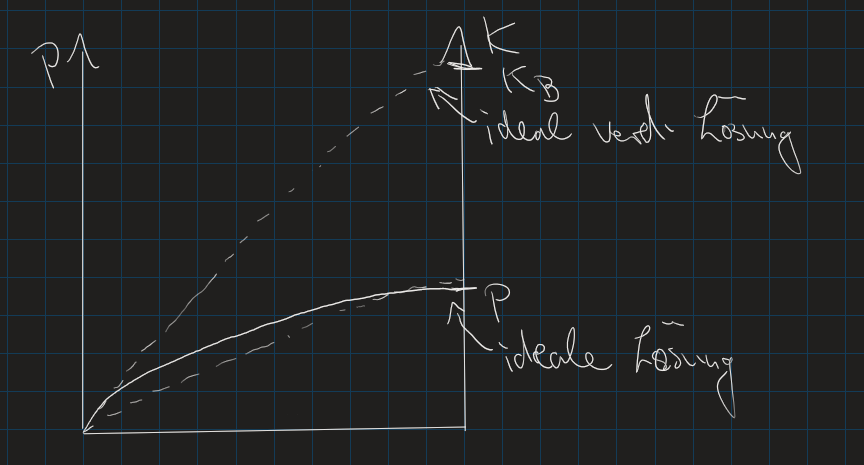 P
K
K_B
ideal verd. Lösung
P
ideale Lösung